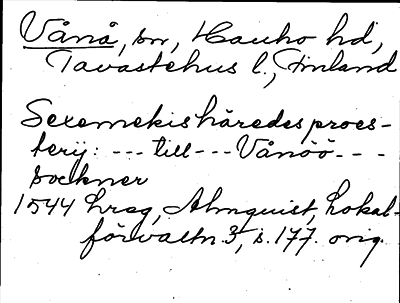 Vånå, sn, Hauho hd,
Tavastehus l., Finland
Sexemekis häredes proes-
terij: --- till --- Vånöö - - -
sockner
1544 hrsg, Almquist, Lokal-
förvaltn 3, s. 177. orig